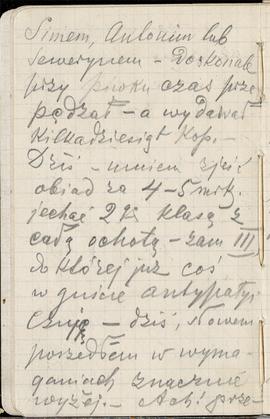 Simem, Antonim lub
Sewerynem – Doskonale
przy piwku czas prze
pędzał – a wydawał
kilkadziesiąt kop. –
Dziś – umiem zjeść
obiad za 4–5 mrk.
jechać 2 kl. klasą z
całą ochotą – zam III
do której już coś
w guście antypaty
czuję – dziś, słowem
poszedłem w wyma-
ganiach znacznie
wyżej. – Ach! prze-